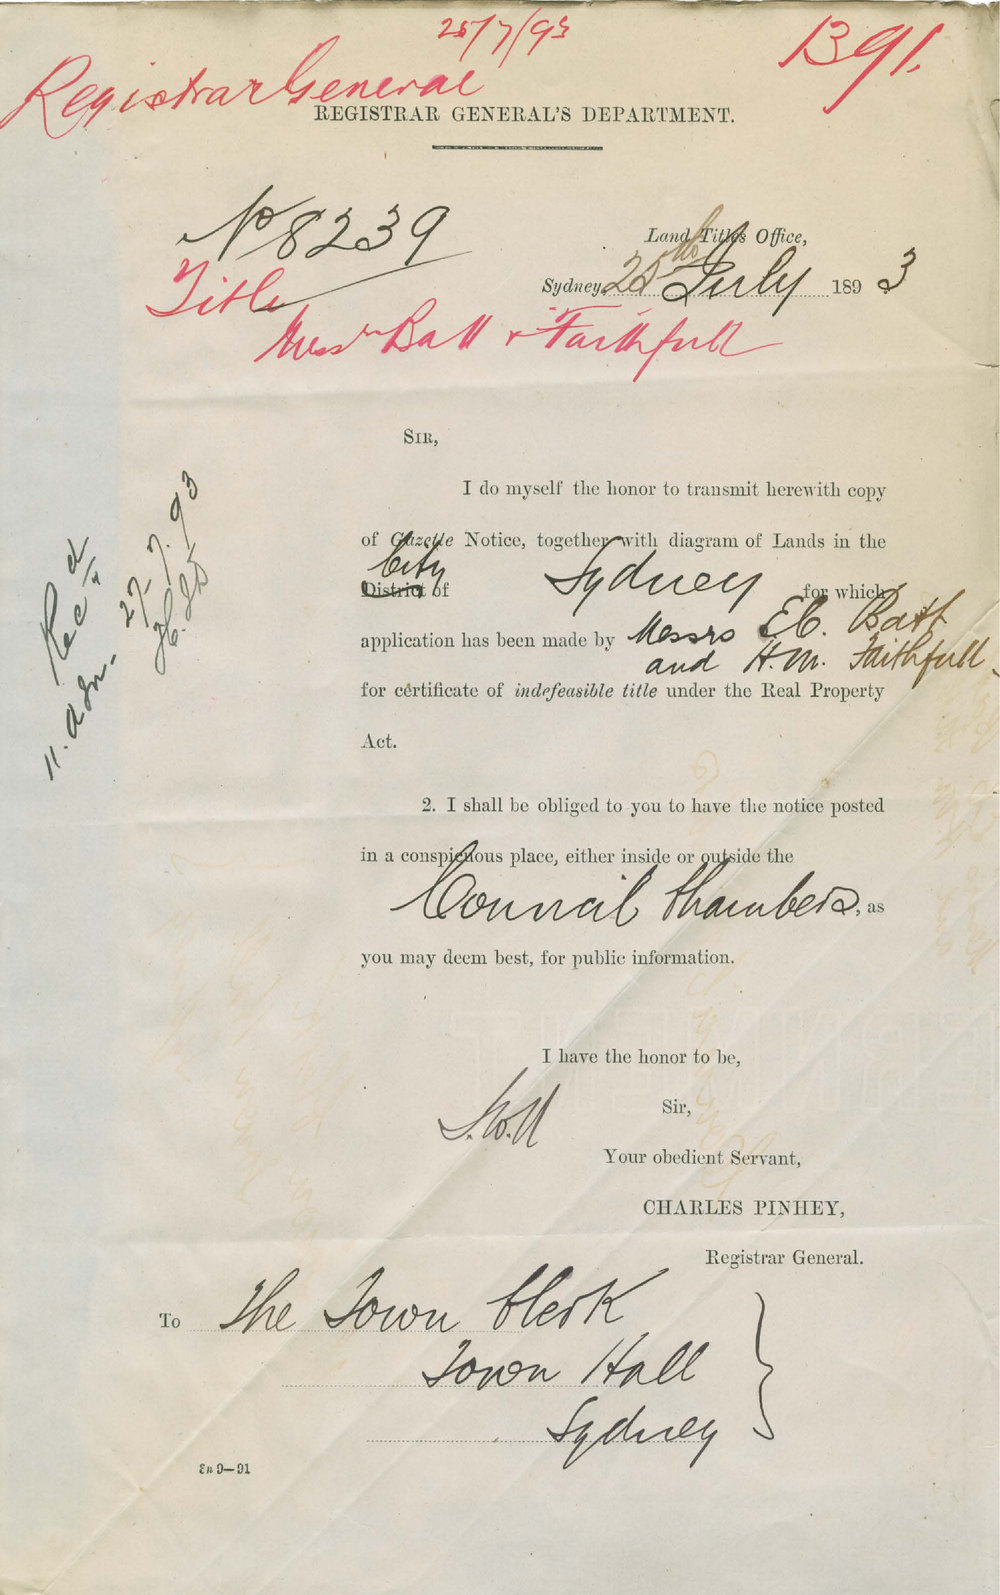 25/7/93
1391.
Registrar General
REGISTRAR GENERAL'S DEPARTMENT.
No 8239
Land Titles Office,
Sydney 25th July 1893
Title
Messrs Batt & Faithfull
SIR,
I do myself the honor to transmit herewith copy
of Gazette Notice, together with diagram of Lands in the
City
District of Sydney for which
application has been made by Messrs E C. Batt
and H. M. Faithfull
for certificate of indefeasible title under the Real Property
Act.
Recd
11. a.m.
27.7.93
2. I shall be obliged to you to have the notice posted
in a conspicuous place, either inside or outside the
Council Chambers, as
you may deem best, for public information.
I have the honor to be,
Sir,
Your obedient Servant,
CHARLES PINHEY,
Registrar General.
To The Town Clerk
Town Hall
Sydney
9—91